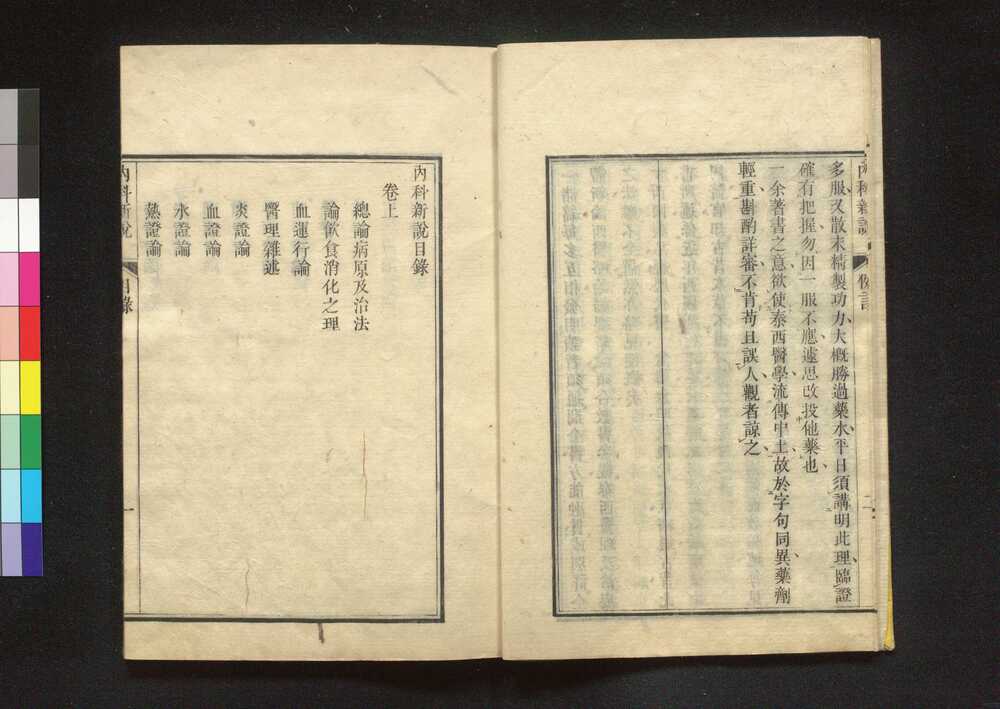 內科新說
例言
多服又散末精製功力大概勝過藥水平日須講明此理臨證
確有把握勿因一服不應遽思改投他藥也
一余著書之意欲使泰西醫學流傳中土故於字句同異藥劑
輕重斟酌詳審不肯苟且誤人觀者諒之
內科新說目錄
卷上
總論病原及治法
論飲食消化之理
血運行論
醫理雜述
炎證論
血證論
水證論
熱證論
內科新說
目錄
一